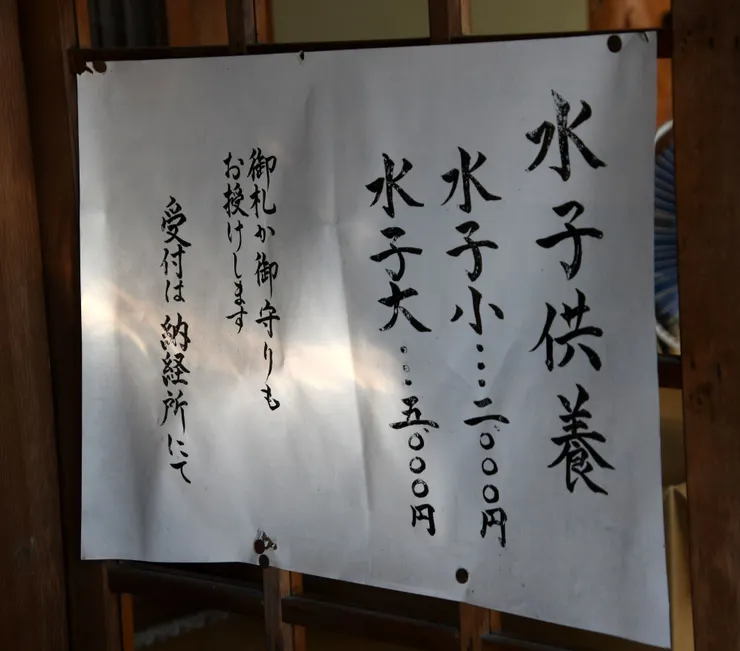 水子供養
水子小…二、〇〇〇円
水子大…五、〇〇〇円
御札か御守りも
お授けします
受付は 納経所にて